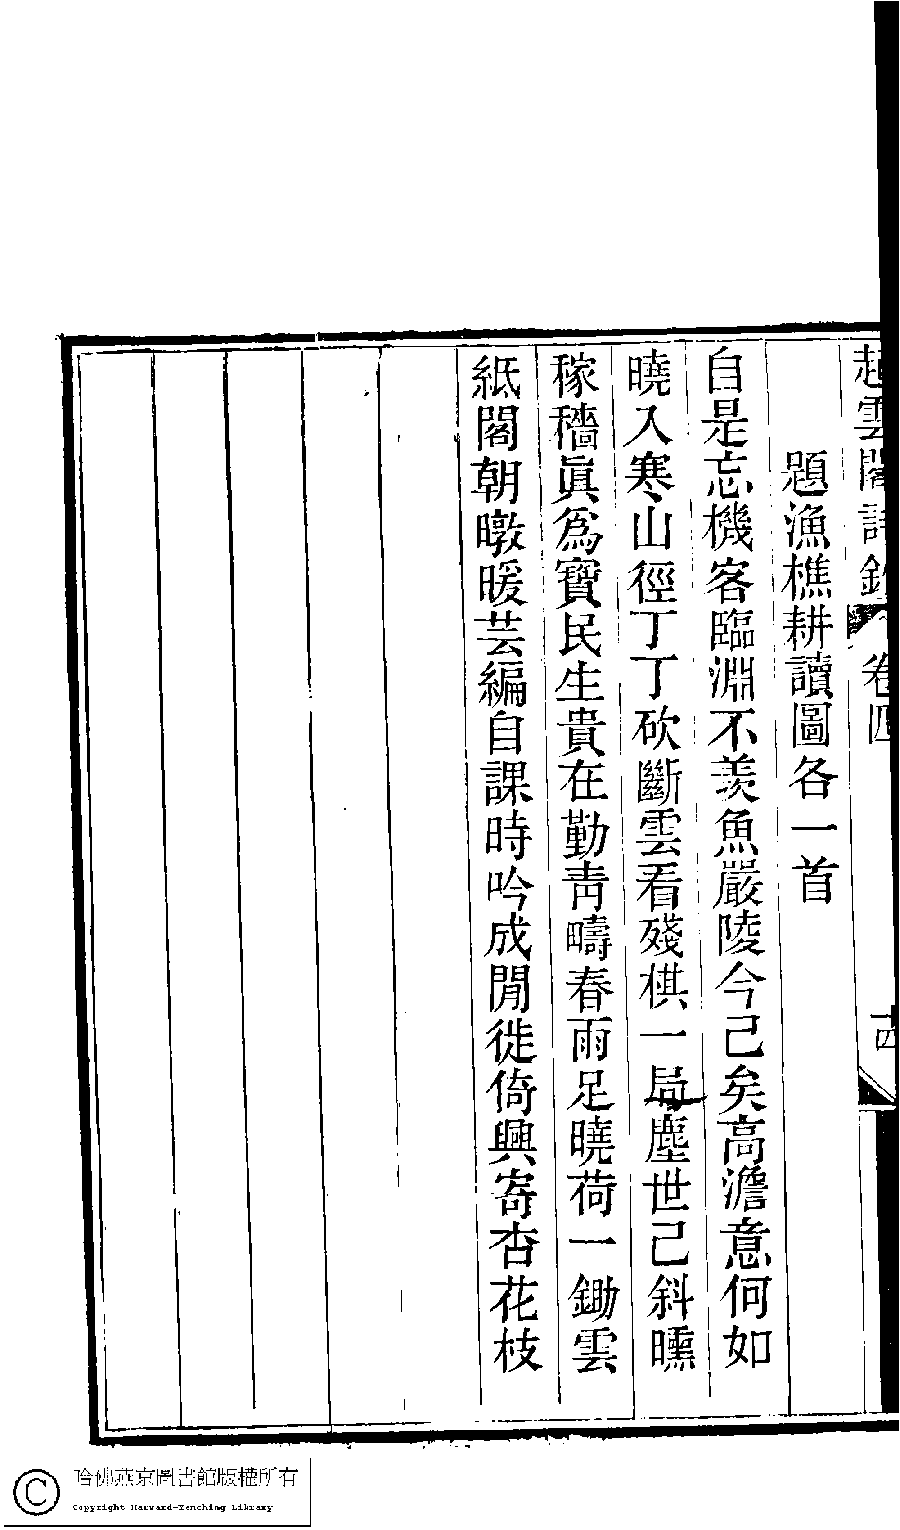 起雲閣詩鈔 卷四 十四
題漁樵耕讀圖各一首
自是忘機客臨淵不羨魚嚴陵今已矣高澹意何如
曉入寒山徑丁丁砍斷雲看殘棋一局塵世已斜曛
稼穡眞爲寶民生貴在勤靑疇春雨足曉荷一鋤雲
紙閣朝暾暖芸編自課時吟成閒徙倚興寄杏花枝
哈佛燕京圖書館版權所有
Copyright Harvard-Yenching Library